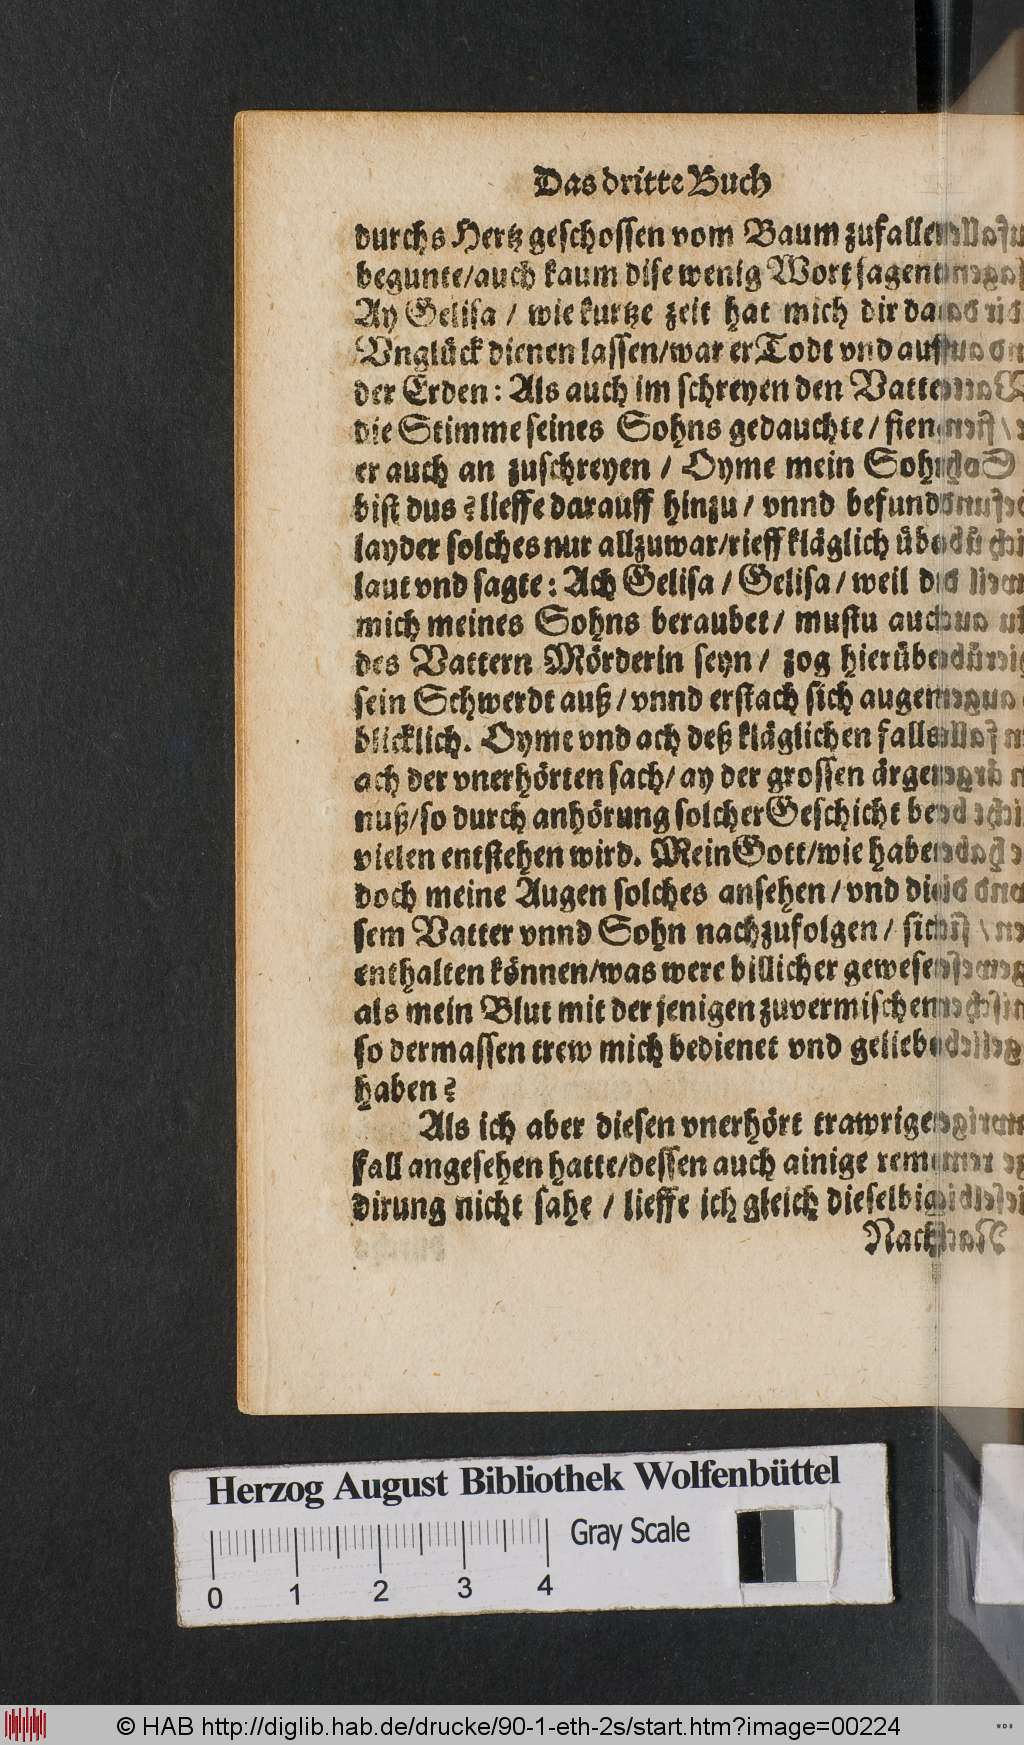 Das dritte Buch
durchs Hertz geschossen vom Baum zufallen
begunte/auch kaum dise wenig Wort sagent
Ay Gelisa / wie kurtze zeit hat mich dir das
Vnglück dienen lassen/war er Todt vnd auff
der Erden: Als auch im schreyen den Vatter
die Stimme seines Sohns gedauchte / fieng
er auch an zuschreyen / Oyme mein Sohn
bist dus? lieffe darauff hinzu / vnnd befund
layder solches nur allzuwar/rieff kläglich über
laut vnd sagte: Ach Gelisa / Gelisa / weil du
mich meines Sohns beraubet / mustu auch
des Vattern Mörderin seyn / zog hierüber
sein Schwerdt auß / vnnd erstach sich augen
blicklich. Oyme vnd ach deß kläglichen falls
ach der vnerhörten sach/ ay der grossen ärger
nuß/so durch anhörung solcher Geschicht bey
vielen entstehen wird. Mein Gott/wie haben
doch meine Augen solches ansehen / vnd die
sem Vatter vnnd Sohn nachzufolgen / sich
enthalten können/was were billicher gewesen
als mein Blut mit der jenigen zuvermischen
so dermassen trew mich bedienet vnd geliebt
haben?
Als ich aber diesen vnerhört trawrigen
fall angesehen hatte/dessen auch ainige reme
dirung nicht sahe / lieffe ich gleich dieselbig
Nach
Herzog August Bibliothek Wolfenbüttel
Gray Scale
0 1 2 3 4
© HAB http://diglib.hab.de/drucke/90-1-eth-2s/start.htm?image=00224